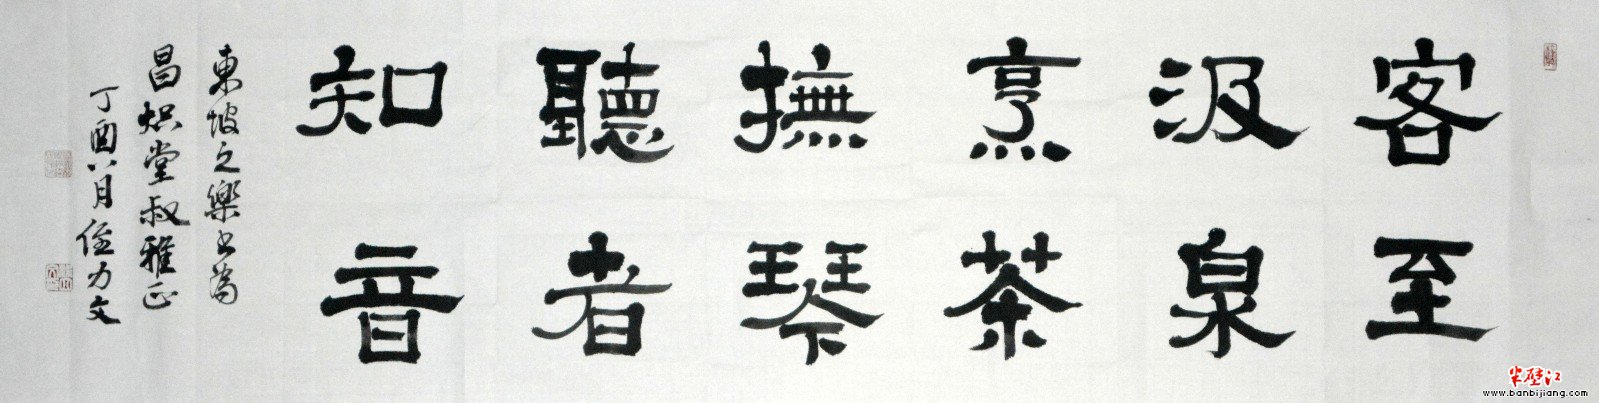 客至
汲泉
烹茶
撫琴
聽者
知音
東坡之樂书為
昌炽堂叔雅正
丁酉八月侄力文
半壁江
www.banbijiang.com